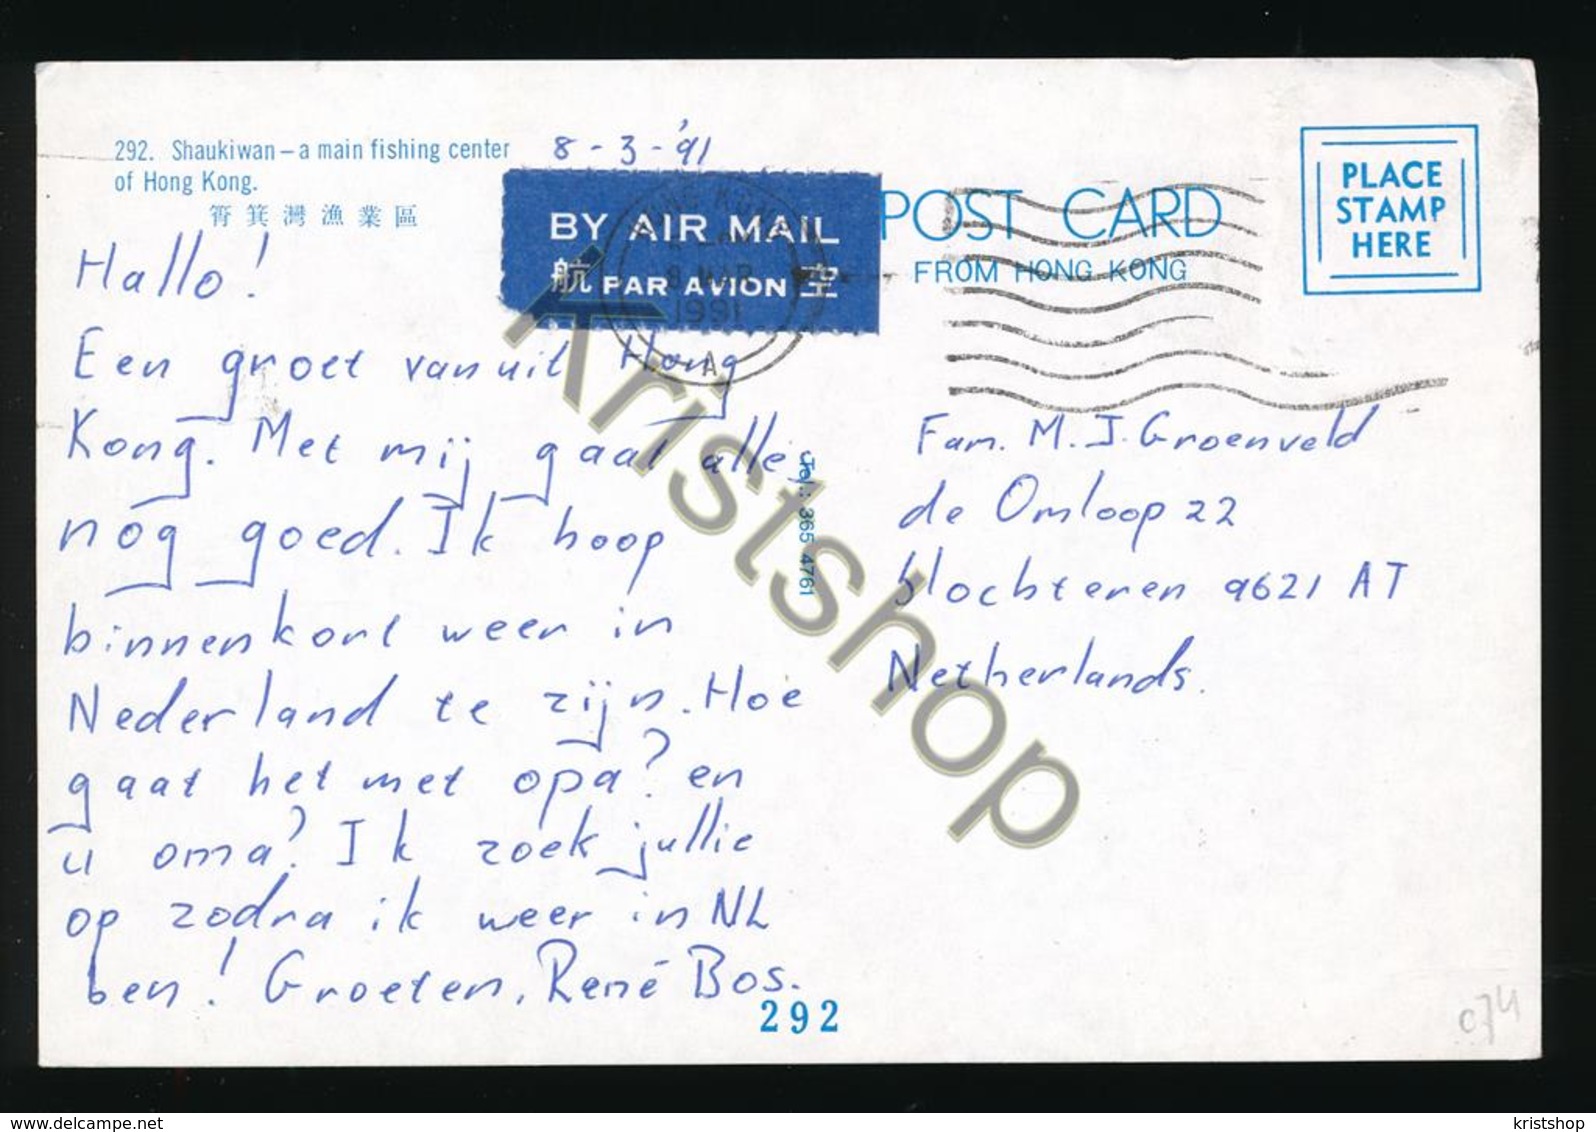 292. Shaukiwan – a main fishing center
of Hong Kong.
筲箕灣漁業區
8 - 3 - '91
BY AIR MAIL
航 PAR AVION 空
HONG KONG
8 MAR
1991
A
POST CARD
FROM HONG KONG
PLACE
STAMP
HERE
Hallo!
Een groet vanuit Hong
Kong. Met mij gaat alles
nog goed. Ik hoop
binnenkort weer in
Nederland te zijn. Hoe
gaat het met opa? en
u oma? Ik zoek jullie
op zodra ik weer in NL
ben! Groeten, René Bos.
Tel.: 365 4761
Fam. M. J. Groenveld
de Omloop 22
Slochteren 9621 AT
Netherlands.
292
c74
Kristshop
www.delcampe.net
kristshop